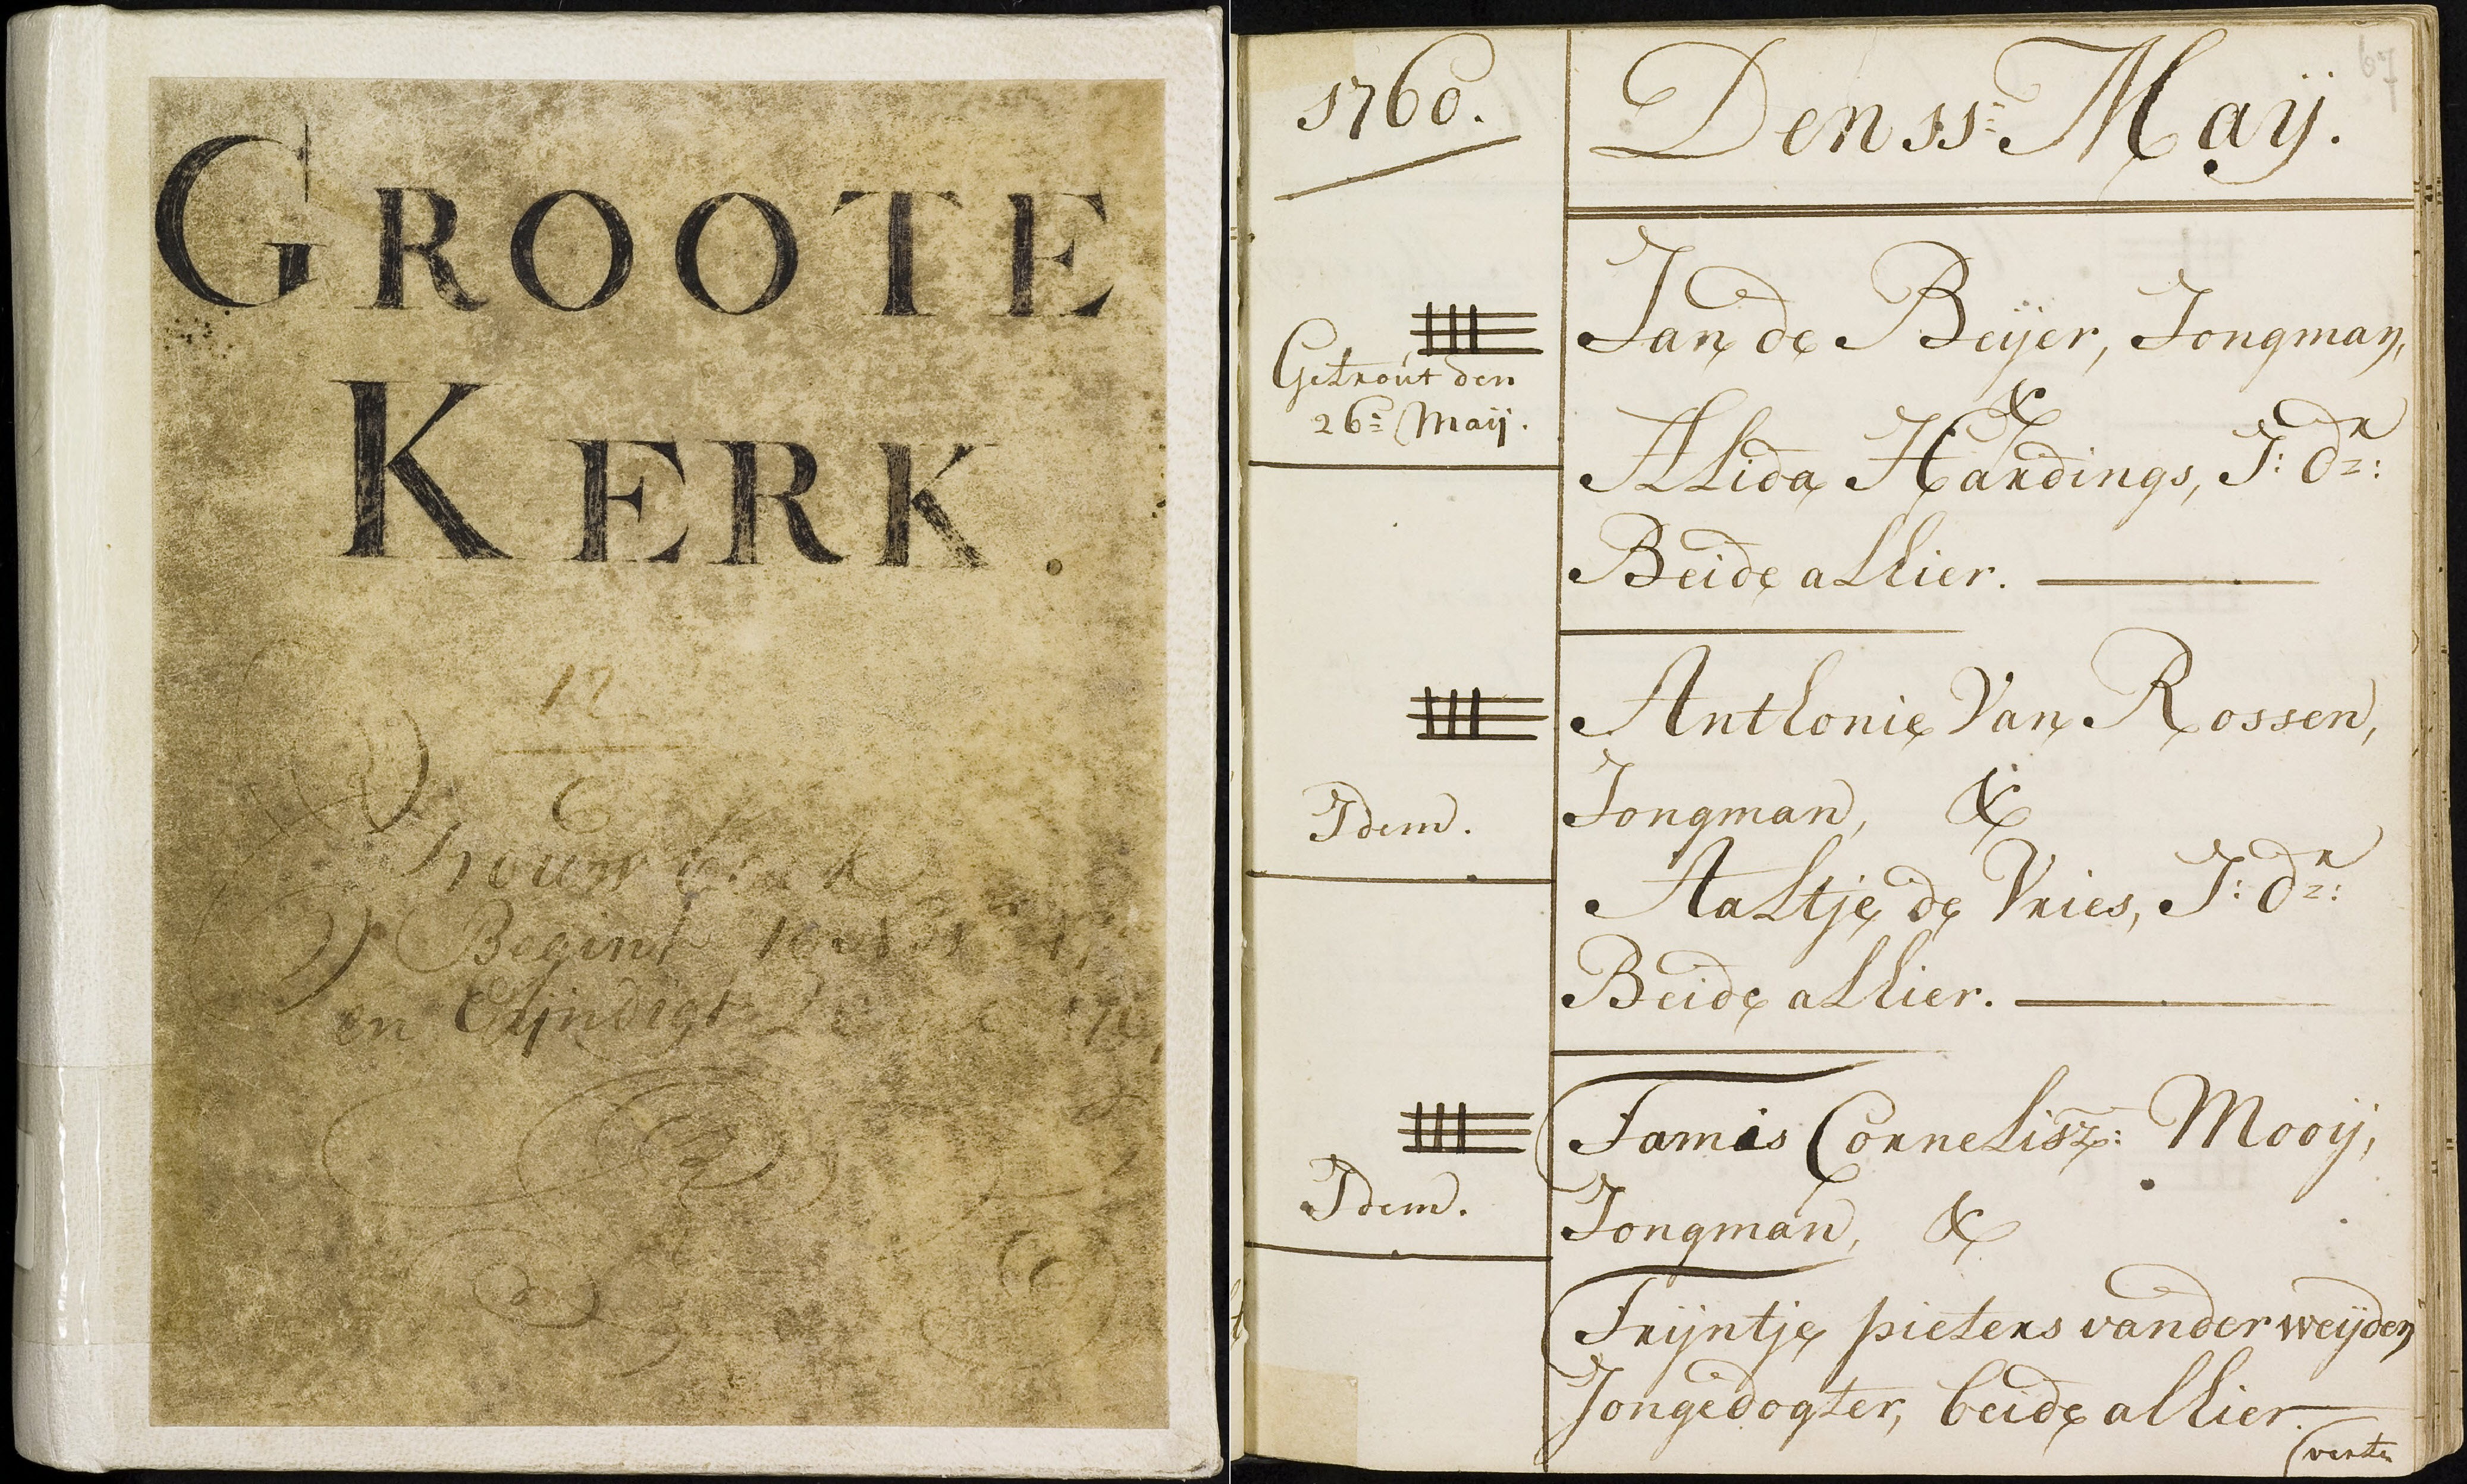 GROOTE
KERK.
12
Trouw boek
Begint
en Eijndigt
1760.
Den 11: Maij.
Getrout den
26: Maij.
Jan de Beijer, Jongman,
&
Alida Hardings, J: dr:
Beide alhier.
Anthonie Van Rossen,
Idem.
Jongman, &
Aaltje de Vries, J: dr:
Beide alhier.
Tamis Cornelisz: Mooij,
Idem.
Jongman, &
Trijntje pieters vander weijden
Jongedogter, beide alhier.
verte